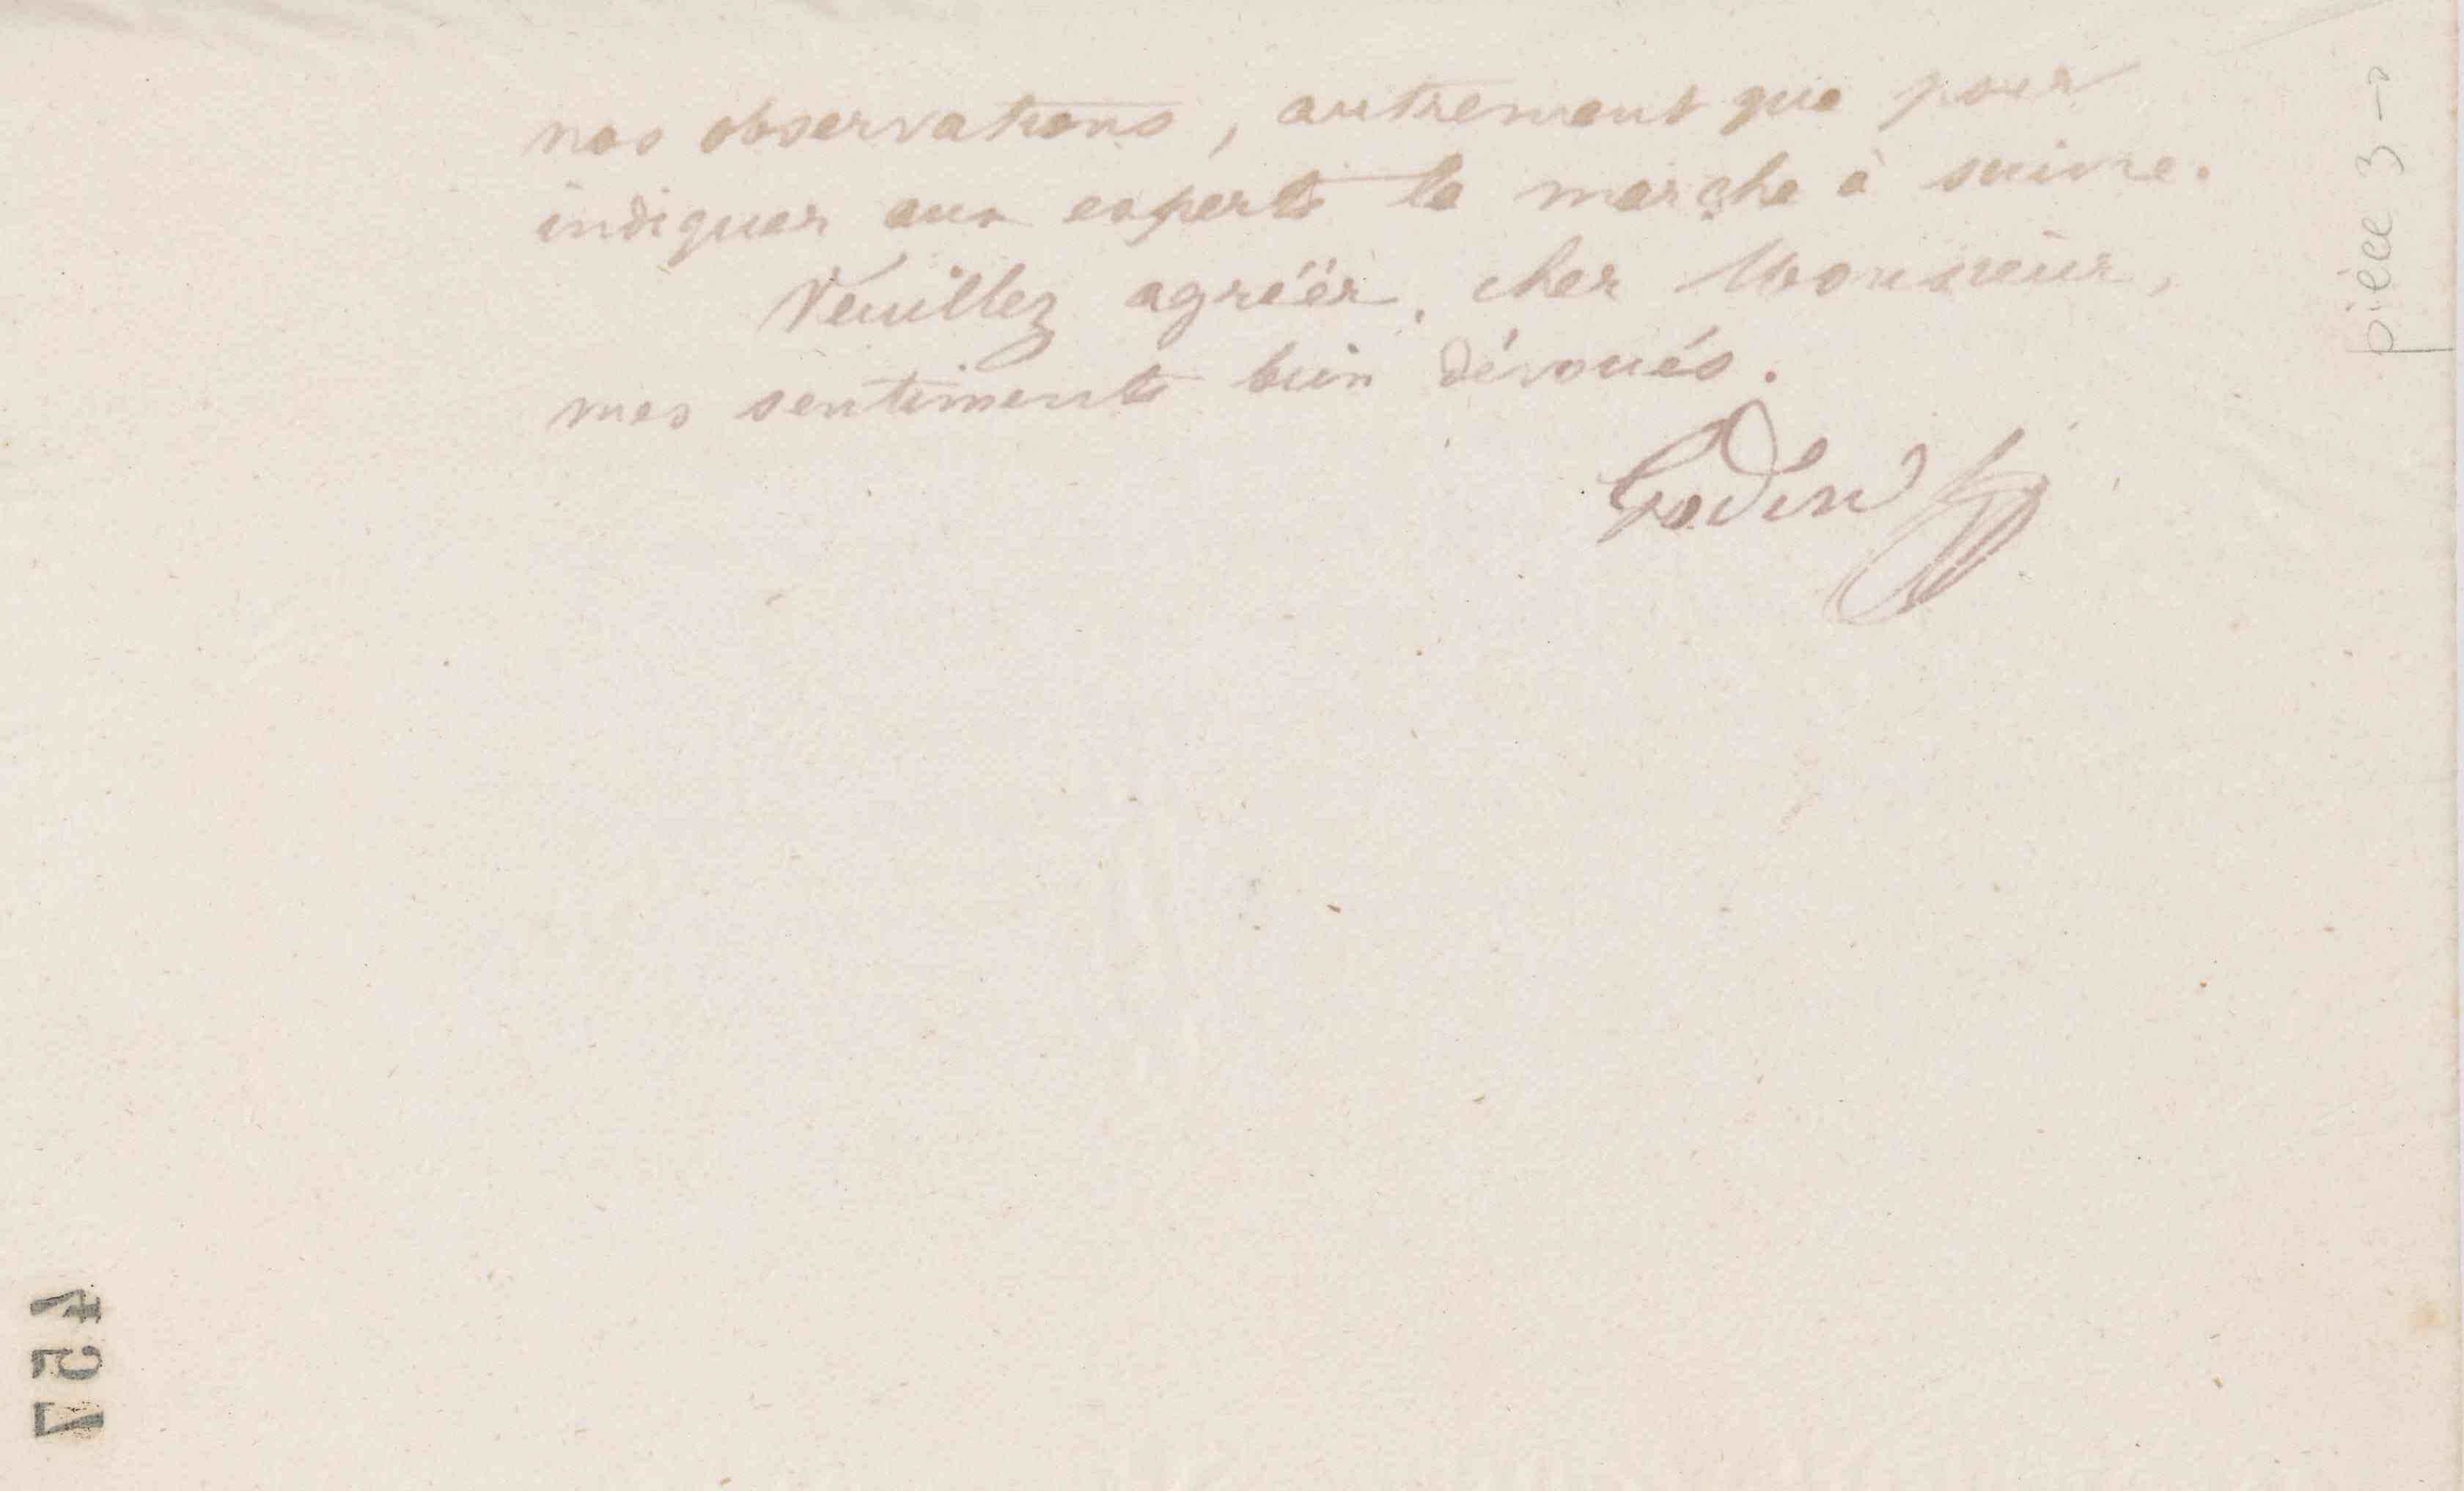 nos observations, autrement que pour
indiquer aux experts la marche à suivre.
Veuillez agréër, cher Monsieur,
mes sentiments bien dévoués.
Godin
pièce 3 →
457